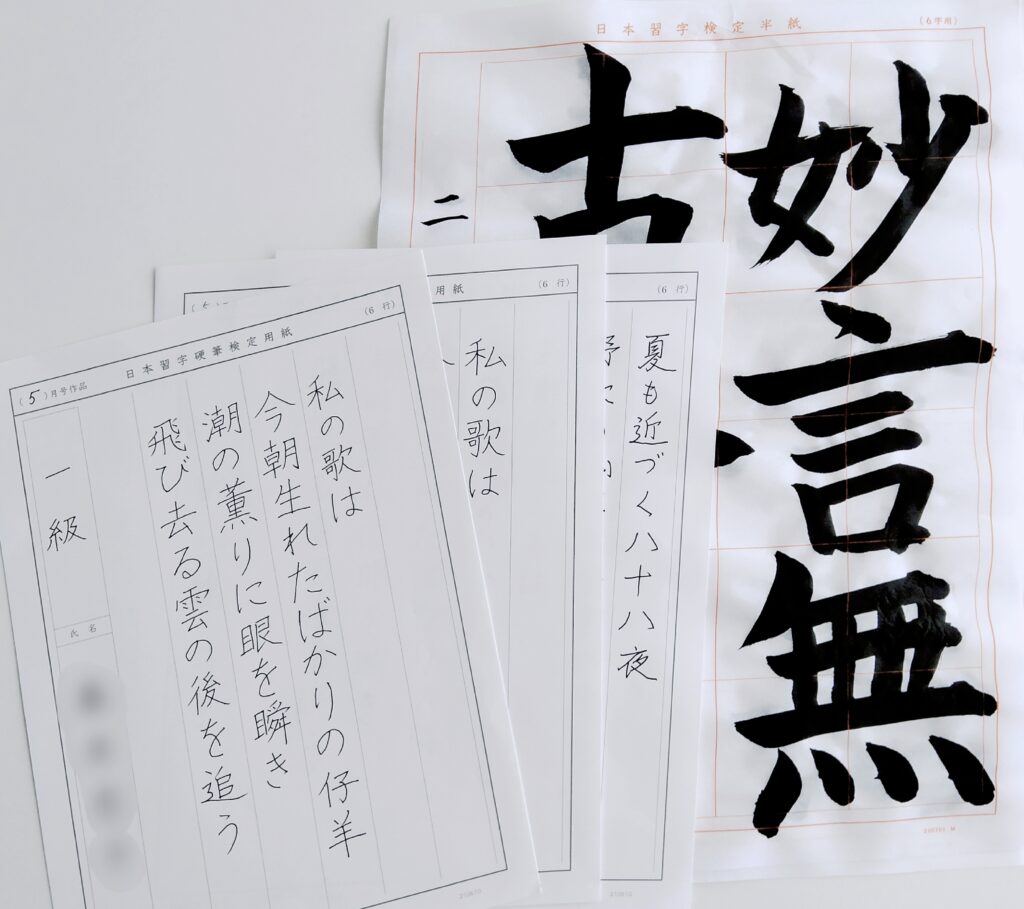 日本習字検定半紙
(6字用)
妙言無
古
二
日本習字硬筆検定用紙
(6 行)
(5)月号作品
私の歌は
今朝生れたばかりの仔羊
潮の薫りに眼を瞬き
飛び去る雲の後を追う
一級
氏名
用紙
(6 行)
私の歌は
(6 行)
夏も近づく八十八夜
野に